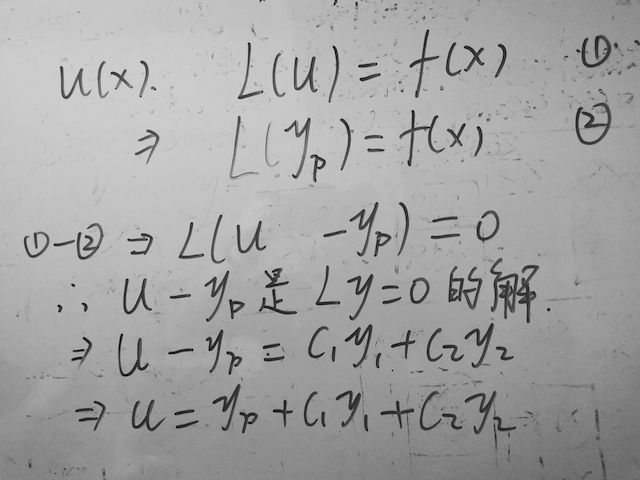 u(x). L(u) = f(x) ①
⇒ L(y_p) = f(x) ②
①-② ⇒ L(u - y_p) = 0
∴ u - y_p 是 Ly=0 的解.
⇒ u - y_p = C₁y₁ + C₂y₂
⇒ u = y_p + C₁y₁ + C₂y₂